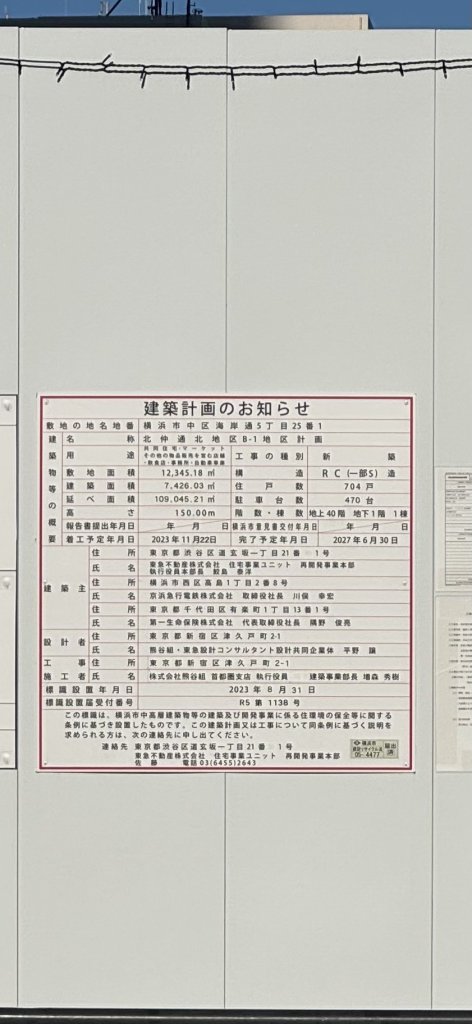 建築計画のお知らせ
敷地の地名地番 横浜市中区海岸通5丁目25番1
建築物等の概要
名称 北仲通北地区B-1地区計画
用途 共同住宅・マーケット その他の物品販売を営む店舗 ・飲食店・事務所・自動車車庫 工事の種別 新築
敷地面積 12,345.18㎡ 構造 RC(一部S)造
建築面積 7,426.03㎡ 住戸数 704戸
延べ面積 109,045.21㎡ 駐車台数 470台
高さ 150.00m 階数・棟数 地上40階 地下1階 1棟
報告書提出年月日 年 月 日 横浜市意見書交付年月日 年 月 日
着工予定年月日 2023年11月22日 完了予定年月日 2027年6月30日
建築主
住所 東京都渋谷区道玄坂一丁目21番 1号
氏名 東急不動産株式会社 住宅事業ユニット 再開発事業本部
執行役員本部長 鮫島 泰洋
住所 横浜市西区高島1丁目2番8号
氏名 京浜急行電鉄株式会社 取締役社長 川俣 幸宏
住所 東京都千代田区有楽町1丁目13番1号
氏名 第一生命保険株式会社 代表取締役社長 隅野 俊亮
設計者
住所 東京都新宿区津久戸町2-1
氏名 熊谷組・東急設計コンサルタント設計共同企業体 平野 譲
工事施工者
住所 東京都新宿区津久戸町2-1
氏名 株式会社熊谷組 首都圏支店 執行役員 建築事業部長 増森 秀樹
標識設置年月日 2023年8月31日
標識設置届受付番号 R5 第 1138 号
この標識は、横浜市中高層建築物等の建築及び開発事業に係る住環境の保全等に関する
条例に基づき設置したものです。この建築計画又は工事について同条例に基づく説明を
求められる方は、次の連絡先に申し出てください。
連絡先 東京都渋谷区道玄坂一丁目21番 1号
東急不動産株式会社 住宅事業ユニット 再開発事業本部
佐藤 電話03(6455)2643
横浜市
建設リサイクル法
05-4477
届出済